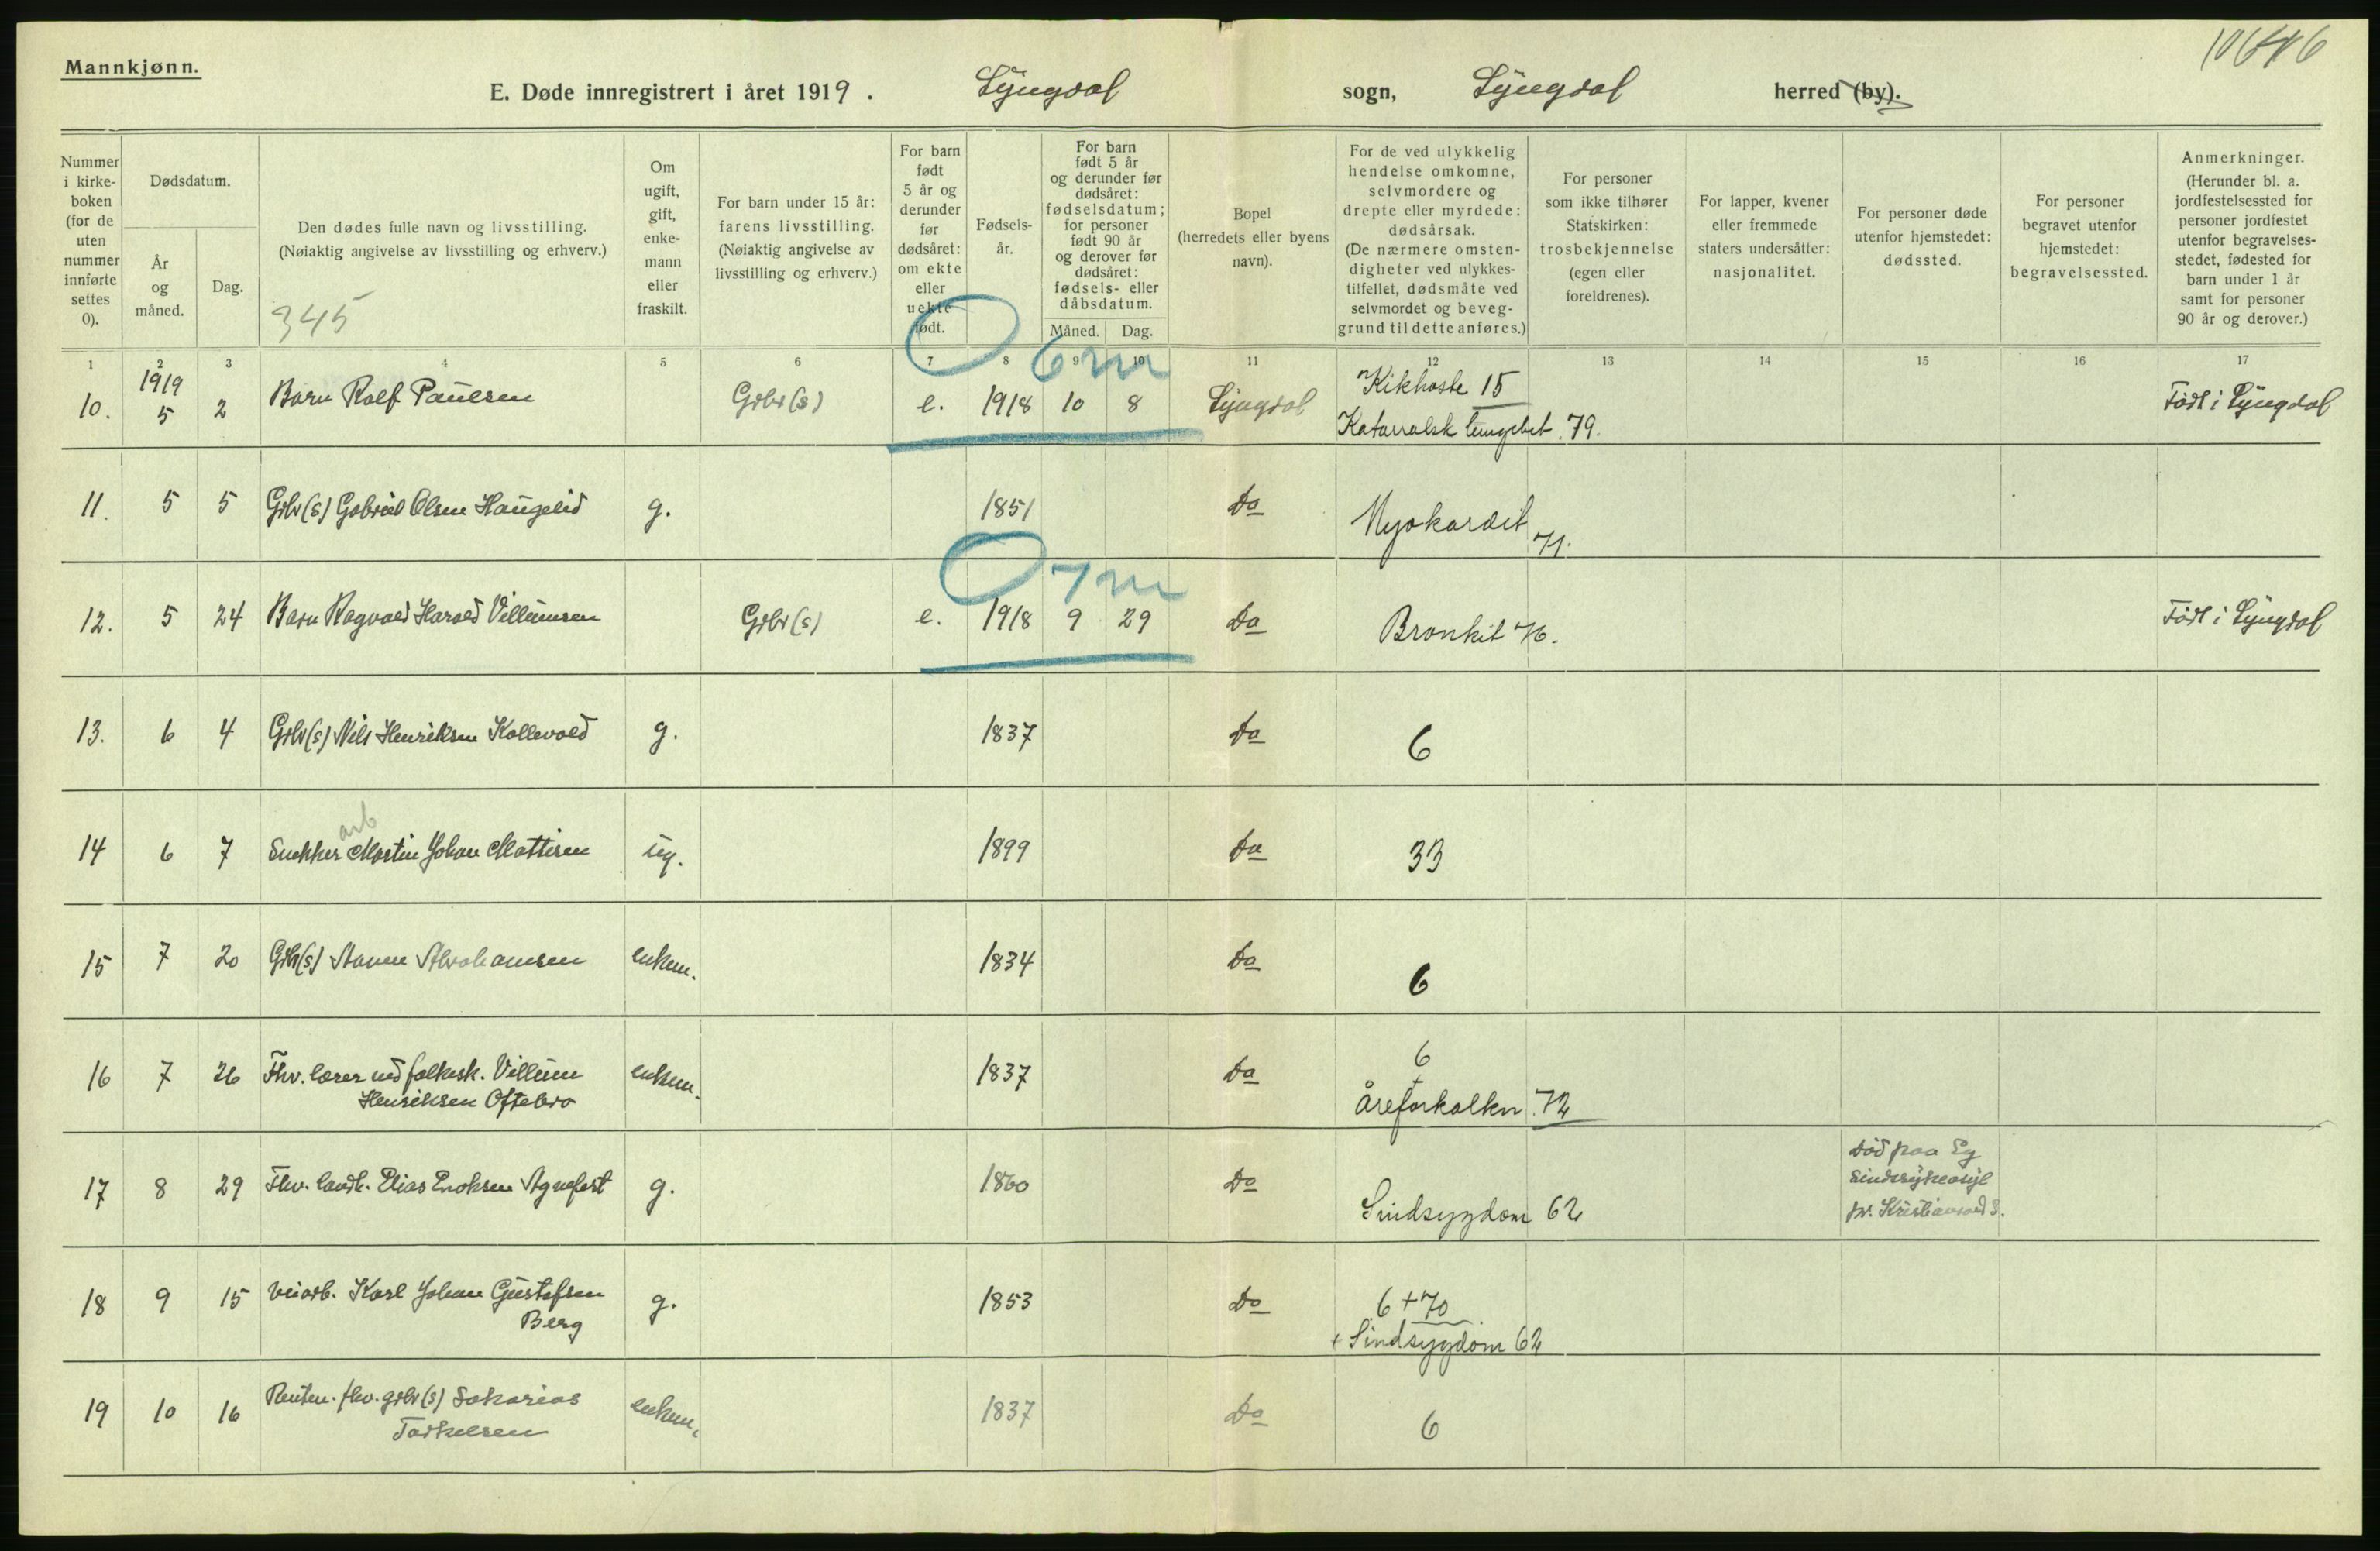 Mannkjønn.
E. Døde innregistrert i året 1919. Lyngdal sogn, Lyngdal herred (by).
345
Nummer i kirkeboken (for de uten nummer innførte settes 0).
Dødsdatum.
År og måned.
Dag.
Den dødes fulle navn og livsstilling.
(Nøiaktig angivelse av livsstilling og erhverv.)
Om ugift, gift, enkemann eller fraskilt.
For barn under 15 år: farens livsstilling.
(Nøiaktig angivelse av livsstilling og erhverv.)
For barn født 5 år og derunder før dødsåret: om ekte eller uekte født.
Fødselsår.
For barn født 5 år og derunder før dødsåret: fødselsdatum; for personer født 90 år og derover før dødsåret: fødsels- eller dåbsdatum.
Måned. Dag.
Bopel (herredets eller byens navn).
For de ved ulykkelig hendelse omkomne, selvmordere og drepte eller myrdede: dødsårsak.
(De nærmere omstendigheter ved ulykkestilfellet, dødsmåte ved selvmordet og beveggrund til dette anføres.)
For personer som ikke tilhører Statskirken: trosbekjennelse (egen eller foreldrenes).
For lapper, kvener eller fremmede staters undersåtter: nasjonalitet.
For personer døde utenfor hjemstedet: dødssted.
For personer begravet utenfor hjemstedet: begravelsessted.
Anmerkninger.
(Herunder bl. a. jordfestelsessted for personer jordfestet utenfor begravelsesstedet, fødested for barn under 1 år samt for personer 90 år og derover.)
1 2 3 4 5 6 7 8 9 10 11 12 13 14 15 16 17
1919
0 6 m
10. 5 2 Barn Rolf Paulsen Grbr (s) e. 1918 10 8 Lyngdal Kikhoste 15 Født i Lyngdal
Katarralsk lungebet. 79.
11. 5 5 Grbr (s) Gabriel Olsen Haugelid g. 1851 Do Myokardit 71.
0 7 m
12. 5 24 Barn Ragvald Harald Villumsen Grbr (s) e. 1918 9 29 Do Bronkit 76. Født i Lyngdal
13. 6 4 Grbr (s) Nils Henriksen Kollevold g. 1837 Do 6
arb
14 6 7 Snekker Martin Johan Mattisen ug. 1899 Do 33
15 7 20 Grbr (s) Aanen Abrahamsen enkem. 1834 Do 6
16 7 26 Fhv. lærer ved folkesk. Villum enkem. 1837 Do 6
Henriksen Oftebro + Åreforkalkn. 72
17 8 29 Fhv. landh. Elias Enoksen Agnefest g. 1860 Do Sindsygdom 62
Død paa Eg
sindssykeasyl
pr. Kristiansand S.
18 9 15 Veiarb. Karl Johan Gustafsen g. 1853 Do 6 + 70
Berg + Sindsygdom 62
19 10 16 Renten. fhv. grbr (s) Sakarias enkem. 1837 Do 6
Torkelsen